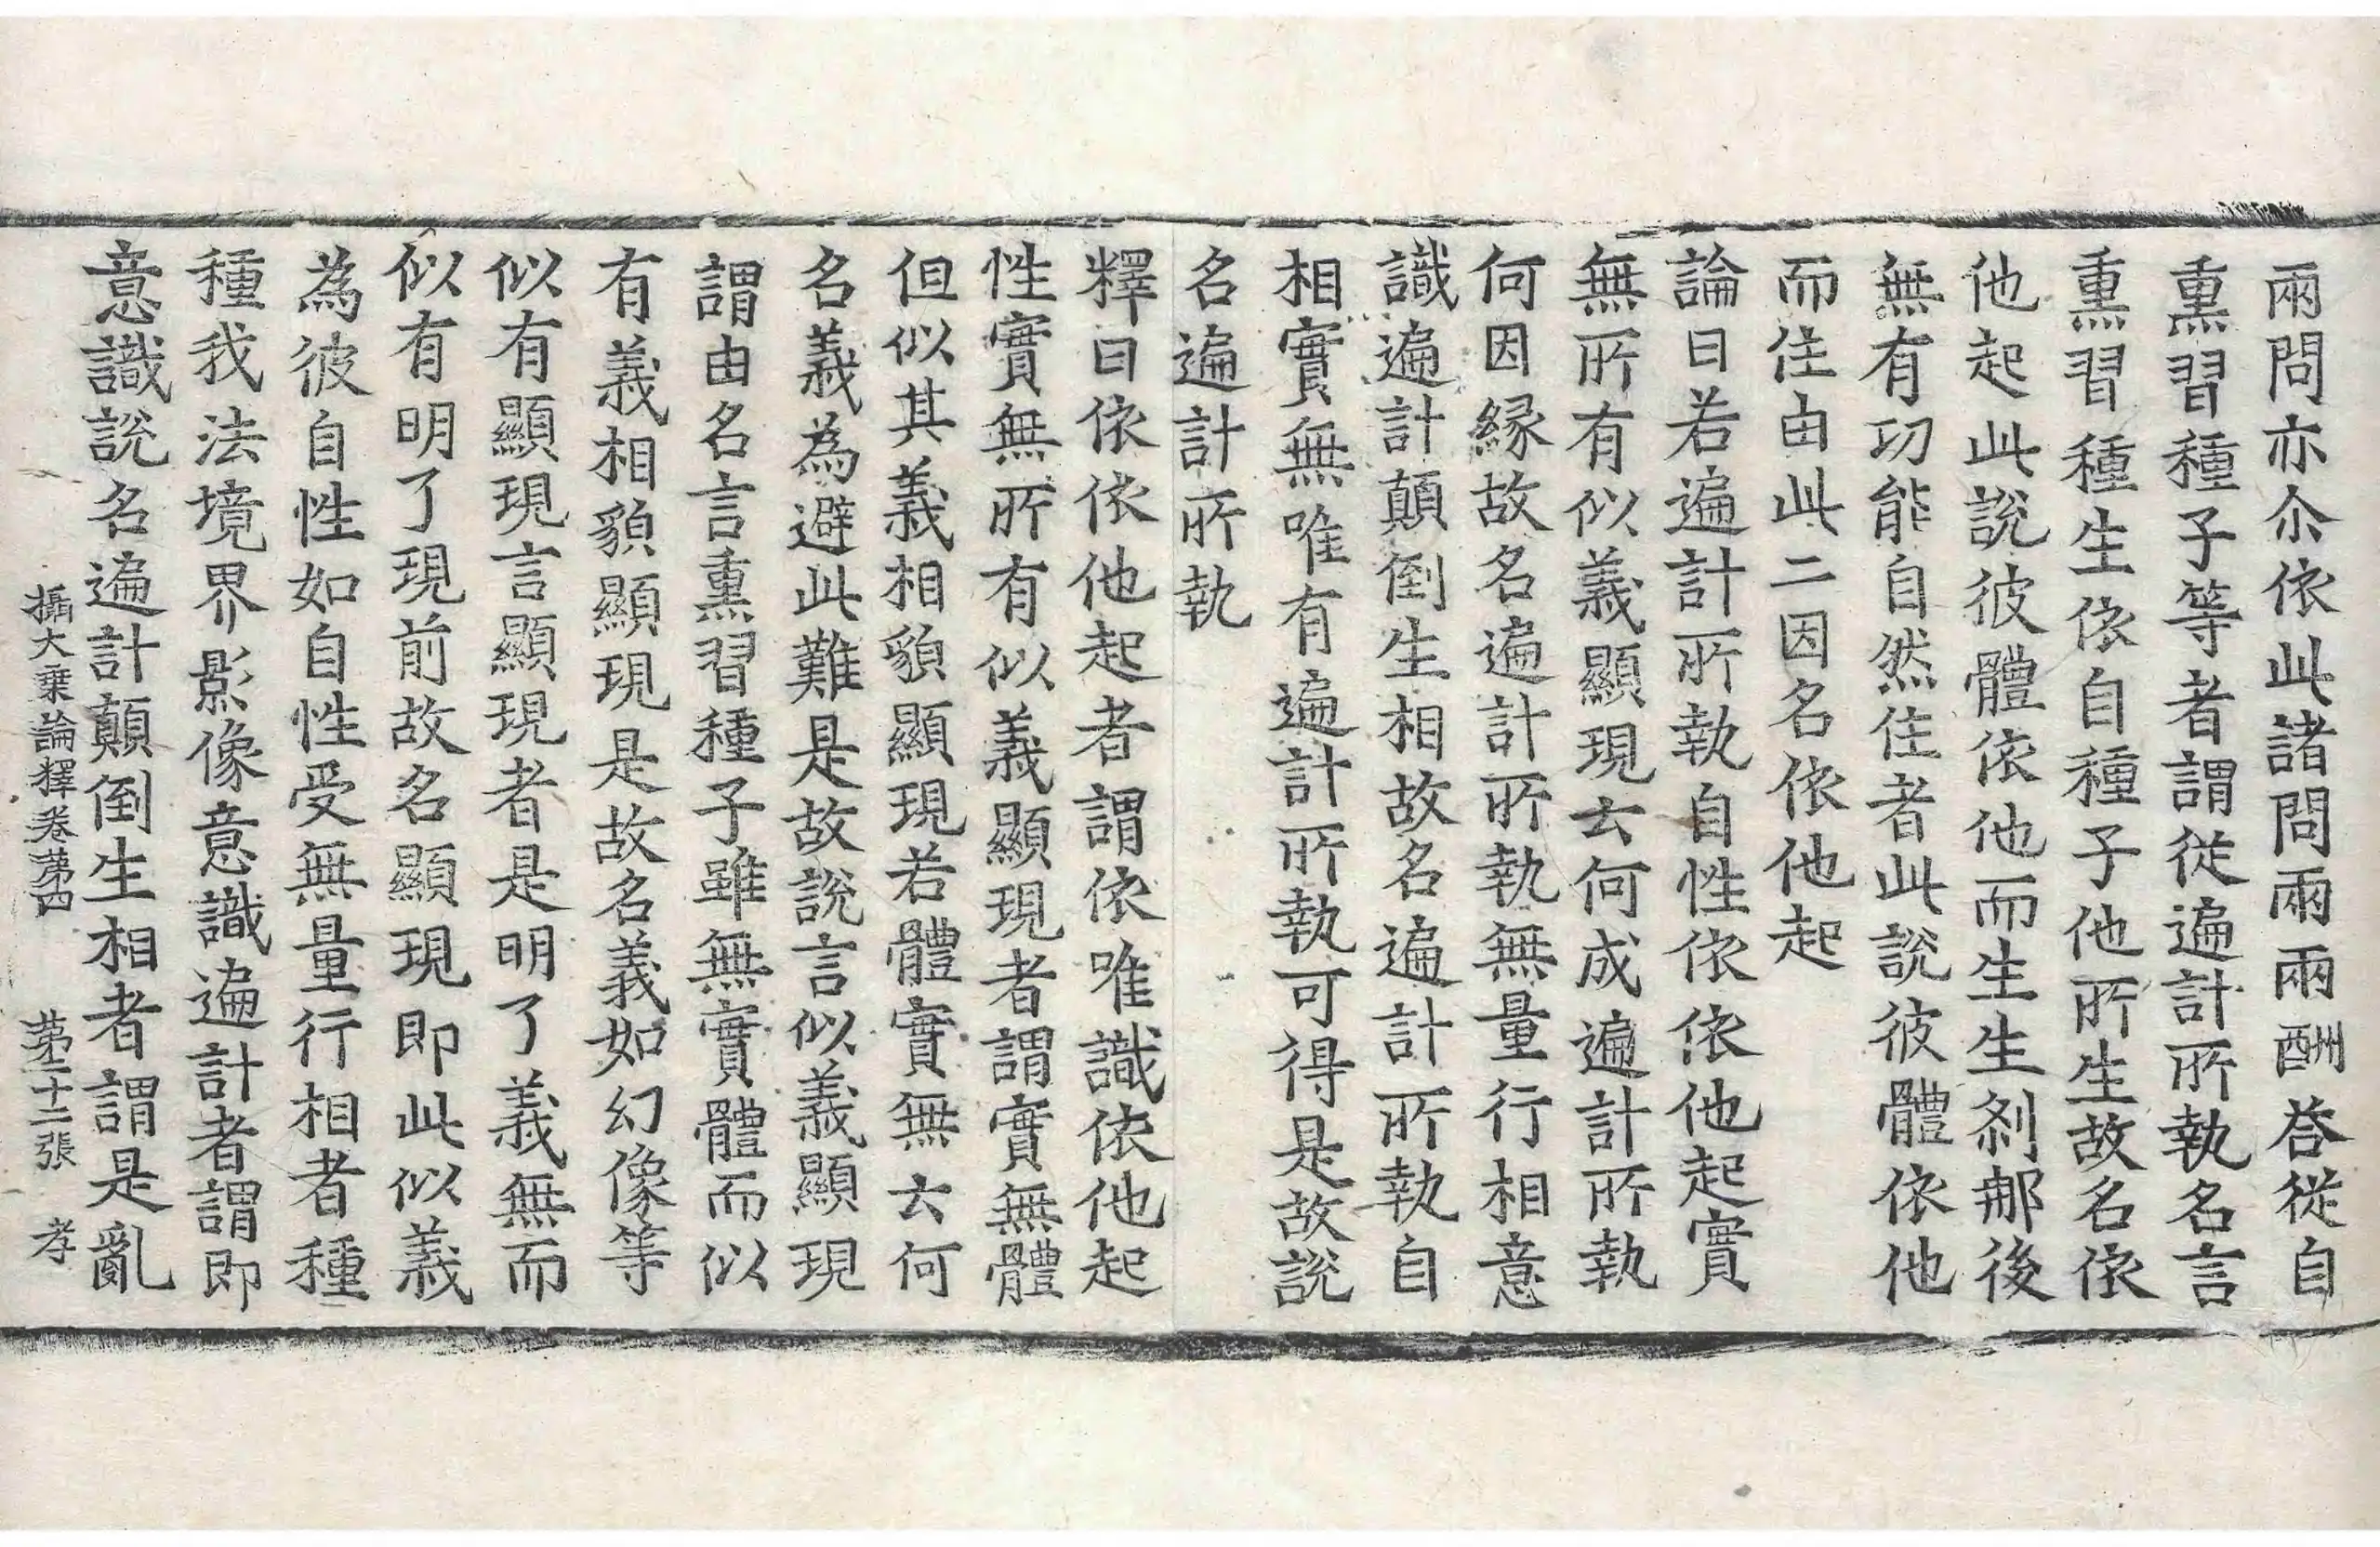 兩問亦尒依此諸問兩兩酬荅從自
熏習種子等者謂從遍計所執名言
熏習種生依自種子他所生故名依
他起此說彼體依他而生生剎那後
無有功能自然住者此說彼體依他
而住由此二因名依他起
論曰若遍計所執自性依依他起實
無所有似義顯現云何成遍計所執
何因緣故名遍計所執無量行相意
識遍計顛倒生相故名遍計所執自
相實無唯有遍計所執可得是故說
名遍計所執
釋曰依依他起者謂依唯識依他起
性實無所有似義顯現者謂實無體
但似其義相貌顯現若體實無云何
名義為避此難是故說言似義顯現
謂由名言熏習種子雖無實體而似
有義相貌顯現是故名義如幻像等
似有顯現言顯現者是明了義無而
似有明了現前故名顯現即此似義
為彼自性如自性受無量行相者種
種我法境界影像意識遍計者謂即
意識說名遍計顛倒生相者謂是亂
攝大乗論釋卷苐四　苐二十二張　孝